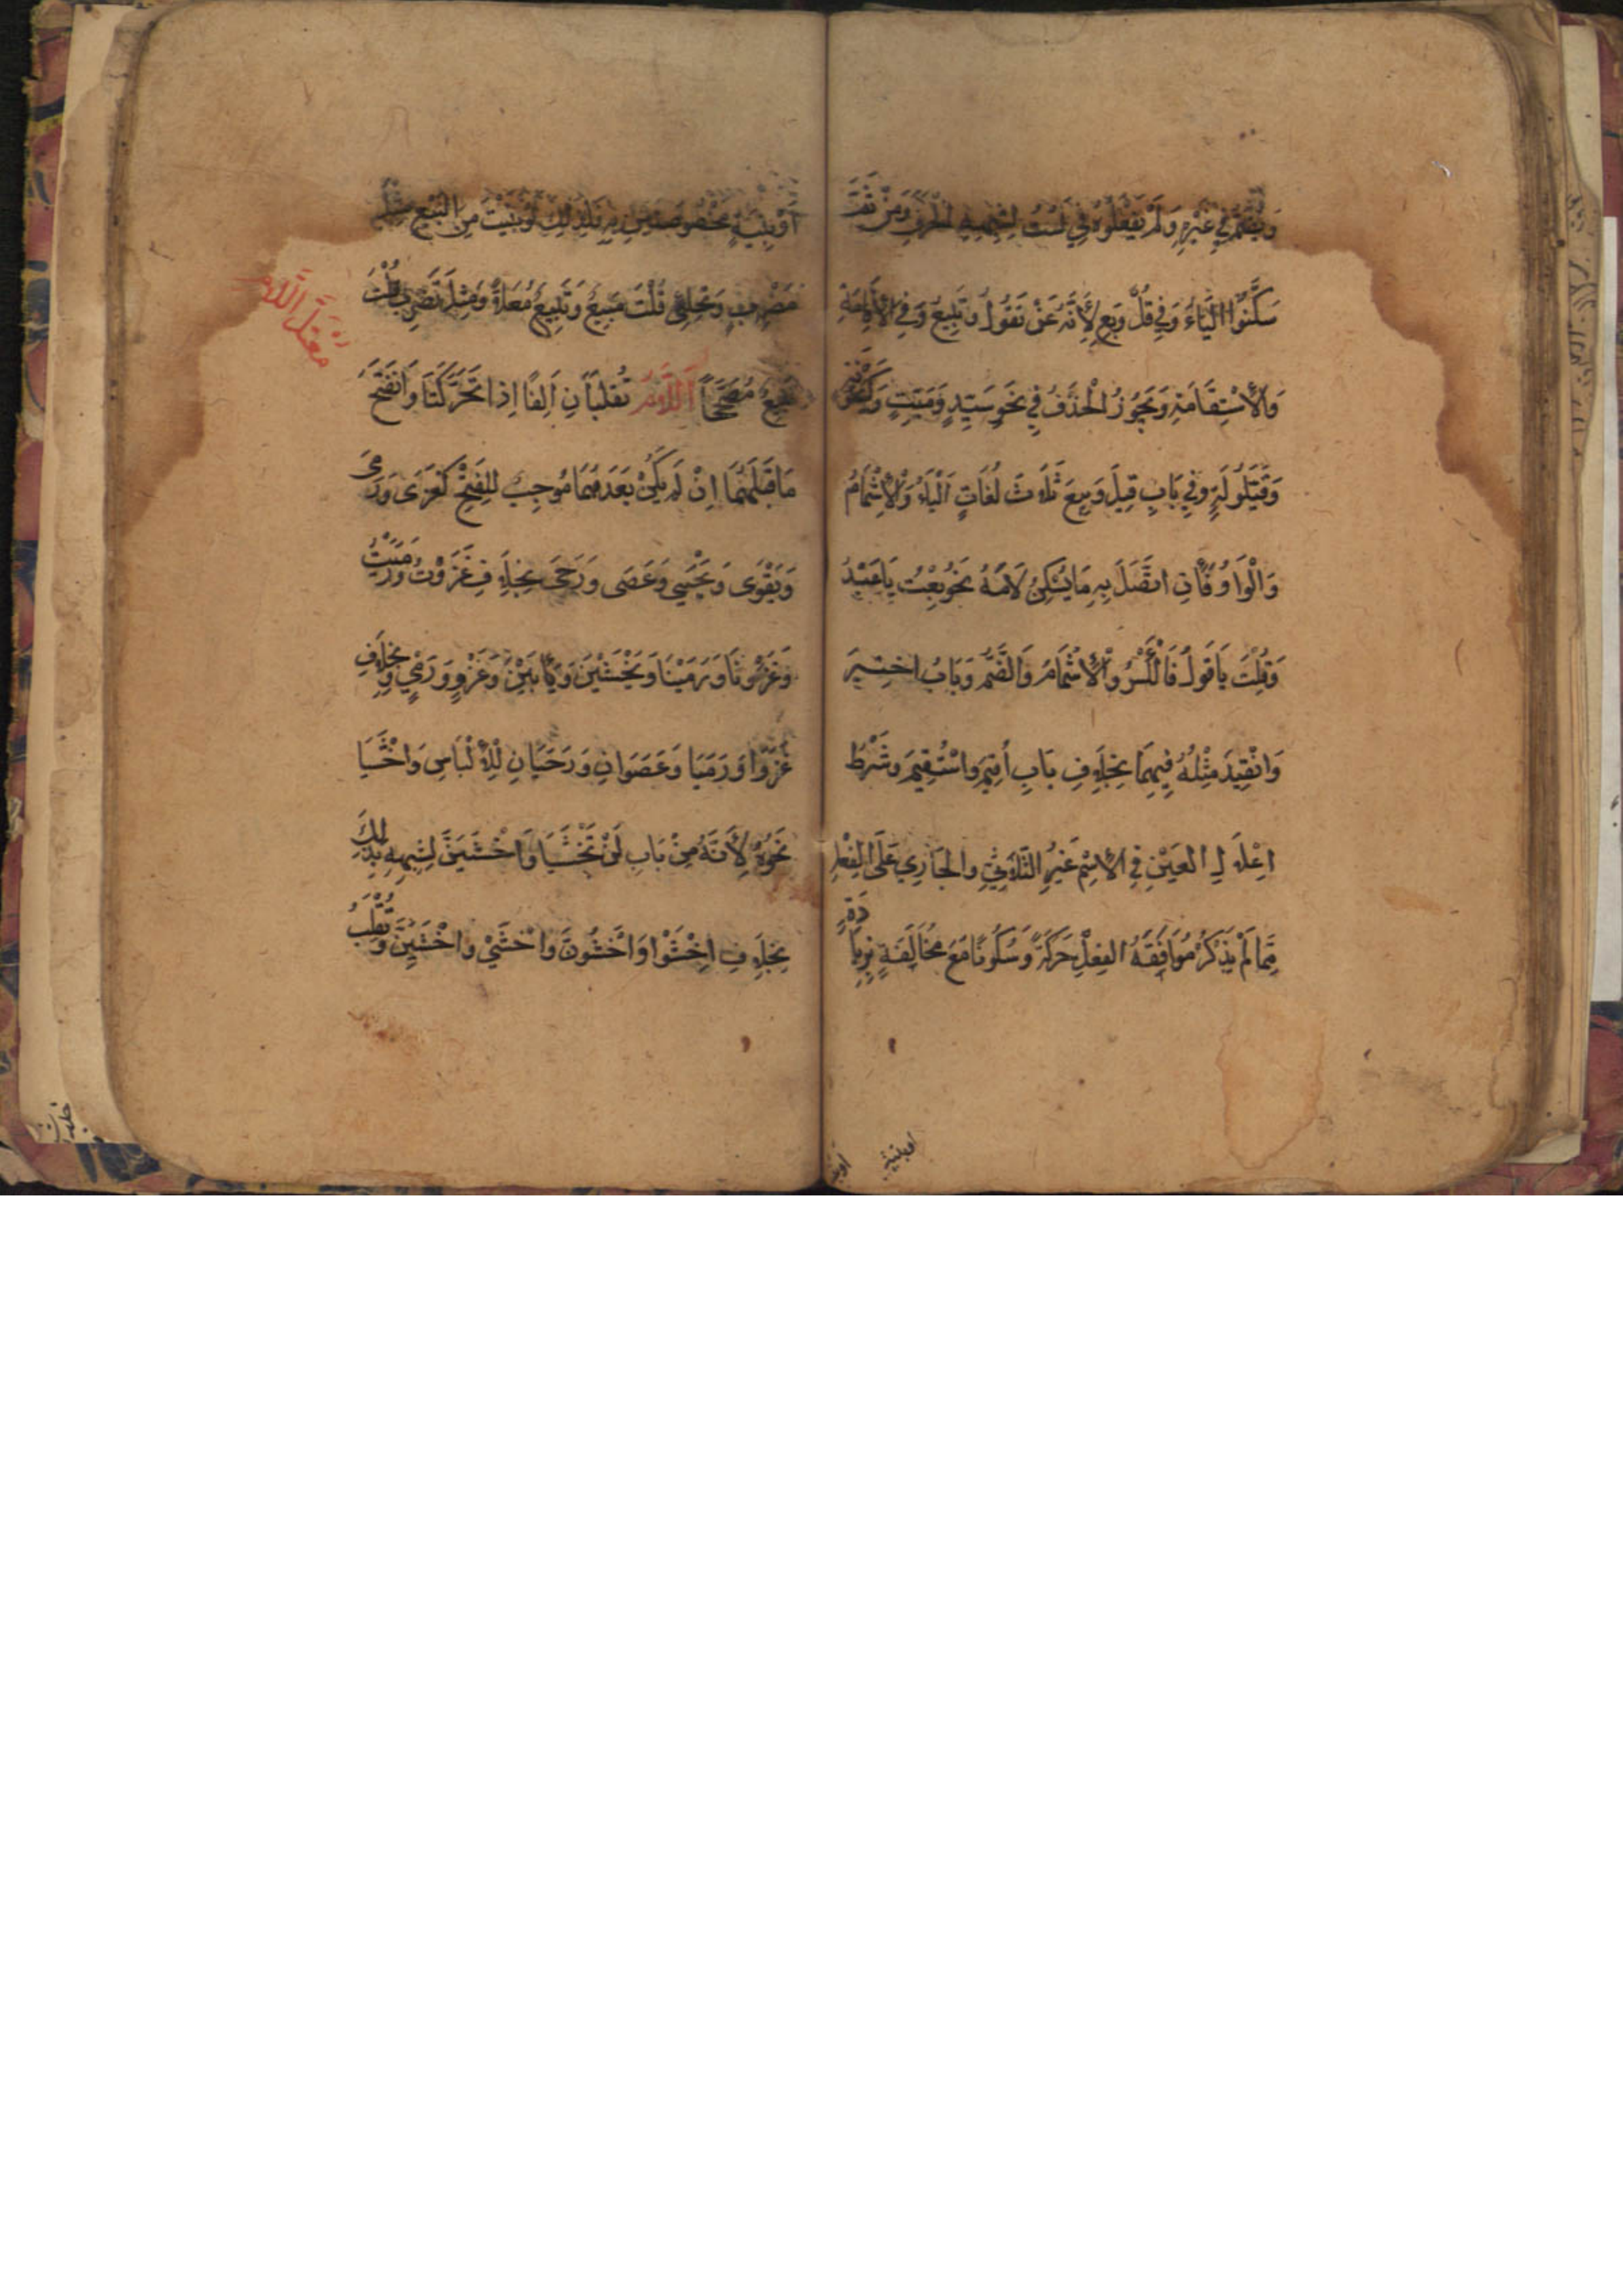 وَيُضَمُّ فِي غَيْرِهِ وَلَمْ يَفْعَلُوهُ فِي لَسْتُ لِشِبْهِهِ الْحَرْفَ وَمِنْ ثَمَّ
سَكَّنُوا الْيَاءَ وَفِي قُلْ وَبِعْ لِأَنَّهُ عَنْ تَقُولُ وَتَبِيعُ وَفِي الْإِقَامَةِ
وَالْاِسْتِقَامَةِ وَيَجُوزُ الْحَذْفُ فِي نَحْوِ سَيِّدٍ وَمَيِّتٍ وَكَيَّنُونَةٍ
وَقَيِّلُولَةٍ وَفِي بَابِ قِيلَ وَبِيعَ ثَلَاثُ لُغَاتٍ اَلْيَاءُ وَالْإِشْمَامُ
وَالْوَاوُ فَإِنِ اتَّصَلَ بِهِ مَا يُسَكِّنُ لَامَهُ نَحْوُ بِعْتُ يَا عَبْدُ
وَقُلْتَ يَا قَوْلُ فَالْكَسْرُ وَالْإِشْمَامُ وَالضَّمُّ وَبَابُ اخْتِيرَ
وَانْقِيدَ مِثْلُهُ فِيهِمَا بِخِلَافِ بَابِ أُقِيمَ وَاسْتُقِيمَ وَشَرْطُ
اِعْلَالِ الْعَيْنِ فِي الْاِسْمِ غَيْرِ الثُّلَاثِيِّ وَالْجَارِي عَلَى الْفِعْلِ
مِمَّا لَمْ يُذْكَرْ مُوَافَقَةُ الْفِعْلِ حَرَكَةً وَسُكُونًا مَعَ مُخَالَفَةٍ بِزِيَادَةٍ
اوبنية
أَوْ بِنْيَةٍ مَخْصُوصَتَيْنِ بِهِ فَلِذَلِكَ لَوْ بَنَيْتَ مِنَ الْبَيْعِ مِثْلَ
مَضْرِبٍ وَتِحْلِئٍ قُلْتَ مَبِيعٌ وَتِبِيعٌ مُعَلًّا وَمِثْلَ تَضْرِبُ قُلْتَ
تَبْيِعُ مُصَحَّحًا اَللَّامُ تُقْلَبَانِ اَلِفًا اِذَا تَحَرَّكَتَا وَانْفَتَحَ
مَا قَبْلَهُمَا اِنْ لَمْ يَكُنْ بَعْدَهُمَا مُوجِبٌ لِلْفَتْحِ كَغَزَى وَرَمَى
وَيَقْوَى وَيَحْيَى وَعَصَى وَرَحَى بِخِلَافِ غَزَوْتُ وَرَمَيْتُ
وَغَزَوْنَا وَرَمَيْنَا وَيَخْشَيْنَ وَيَأْبَيْنَ وَغَزْوٍ وَرَمْيٍ وَبِخِلَافِ
غَزَوَا وَرَمَيَا وَعَصَوَانِ وَرَحَيَانِ لِلْإِلْبَاسِ وَاخْشَيَا
نَحْوُهُ لِأَنَّهُ مِنْ بَابِ لَنْ تَخْشَيَا وَاخْشَيَنَّ لِشِبْهِهِ بِذَلِكَ
بِخِلَافِ اِخْشَوْا وَاخْشَوُنَّ وَاخْشَيْ وَاخْشَيِنَّ وَتُقْلَبُ
مُعْتَلُّ اللَّام